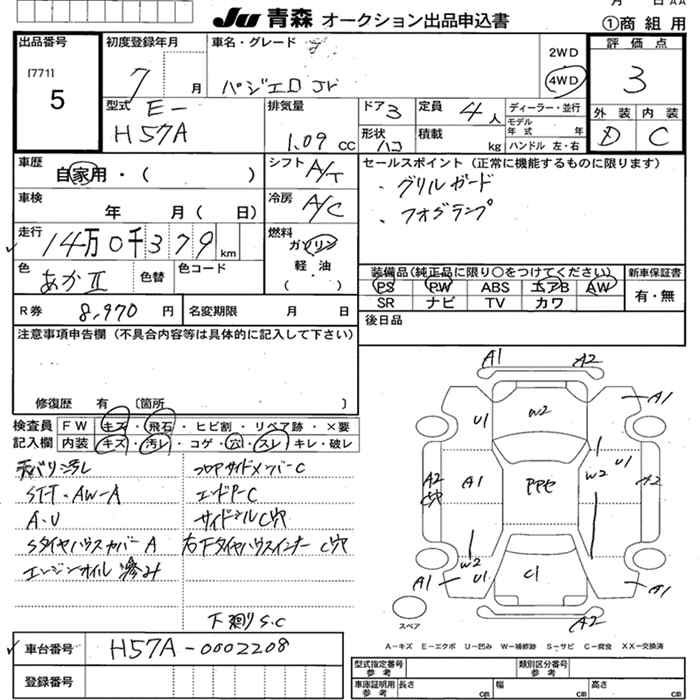 月 日 AA
JU 青森 オークション出品申込書
①商組用
出品番号
[771]
5
初度登録年月
7 月
車名・グレード
パジェロ Jr
2WD
4WD
評価点
3
外装 内装
D C
型式
E-
H57A
排気量
1.09 cc
ドア 3
定員 4 人
形状 ハコ
積載 kg
ディーラー・並行
モデル年式 年
ハンドル 左・右
車歴
自家用・( )
シフト A/T
セールスポイント(正常に機能するものに限ります)
・グリルガード
・フォグランプ
車検
年 月(日)
冷房 A/C
走行
14万0千379km
燃料
ガソリン
軽・油
( )
色
あかII
色替
色コード
装備品(純正品に限り○をつけてください)
PS PW ABS エアB AW
SR ナビ TV カワ
新車保証書
有・無
R券 8,970 円
名変期限 月 日
後日品
注意事項申告欄(不具合内容等は具体的に記入して下さい)
修復歴 有 〔箇所 〕
検査員記入欄
FW キズ・飛石・ヒビ割・リペア跡・×要
内装 キズ・汚レ・コゲ・穴・スレ・キレ・破レ
天バリ汚レ
ST-T・AW-A
A・U
Sタイヤハウスカバー A
エンジンオイル滲み
フロアサイドメンバーC
エンドP-C
サイドシルC穴
右下タイヤハウスインナー C穴
下廻りS.C
A1
A2
A1
U1
W2
A2
C穴
A1
PPP
W2
U1
A2
W2
A1
U1
C1
A1
A2
スペア
A-キズ E-エクボ U-凹み W-補修跡 S-サビ C-腐食 XX-交換済
車台番号
H57A-0002208
登録番号
型式指定番号 参考
類別区分番号 参考
車庫証明用 参考
長さ cm
幅 cm
高さ cm